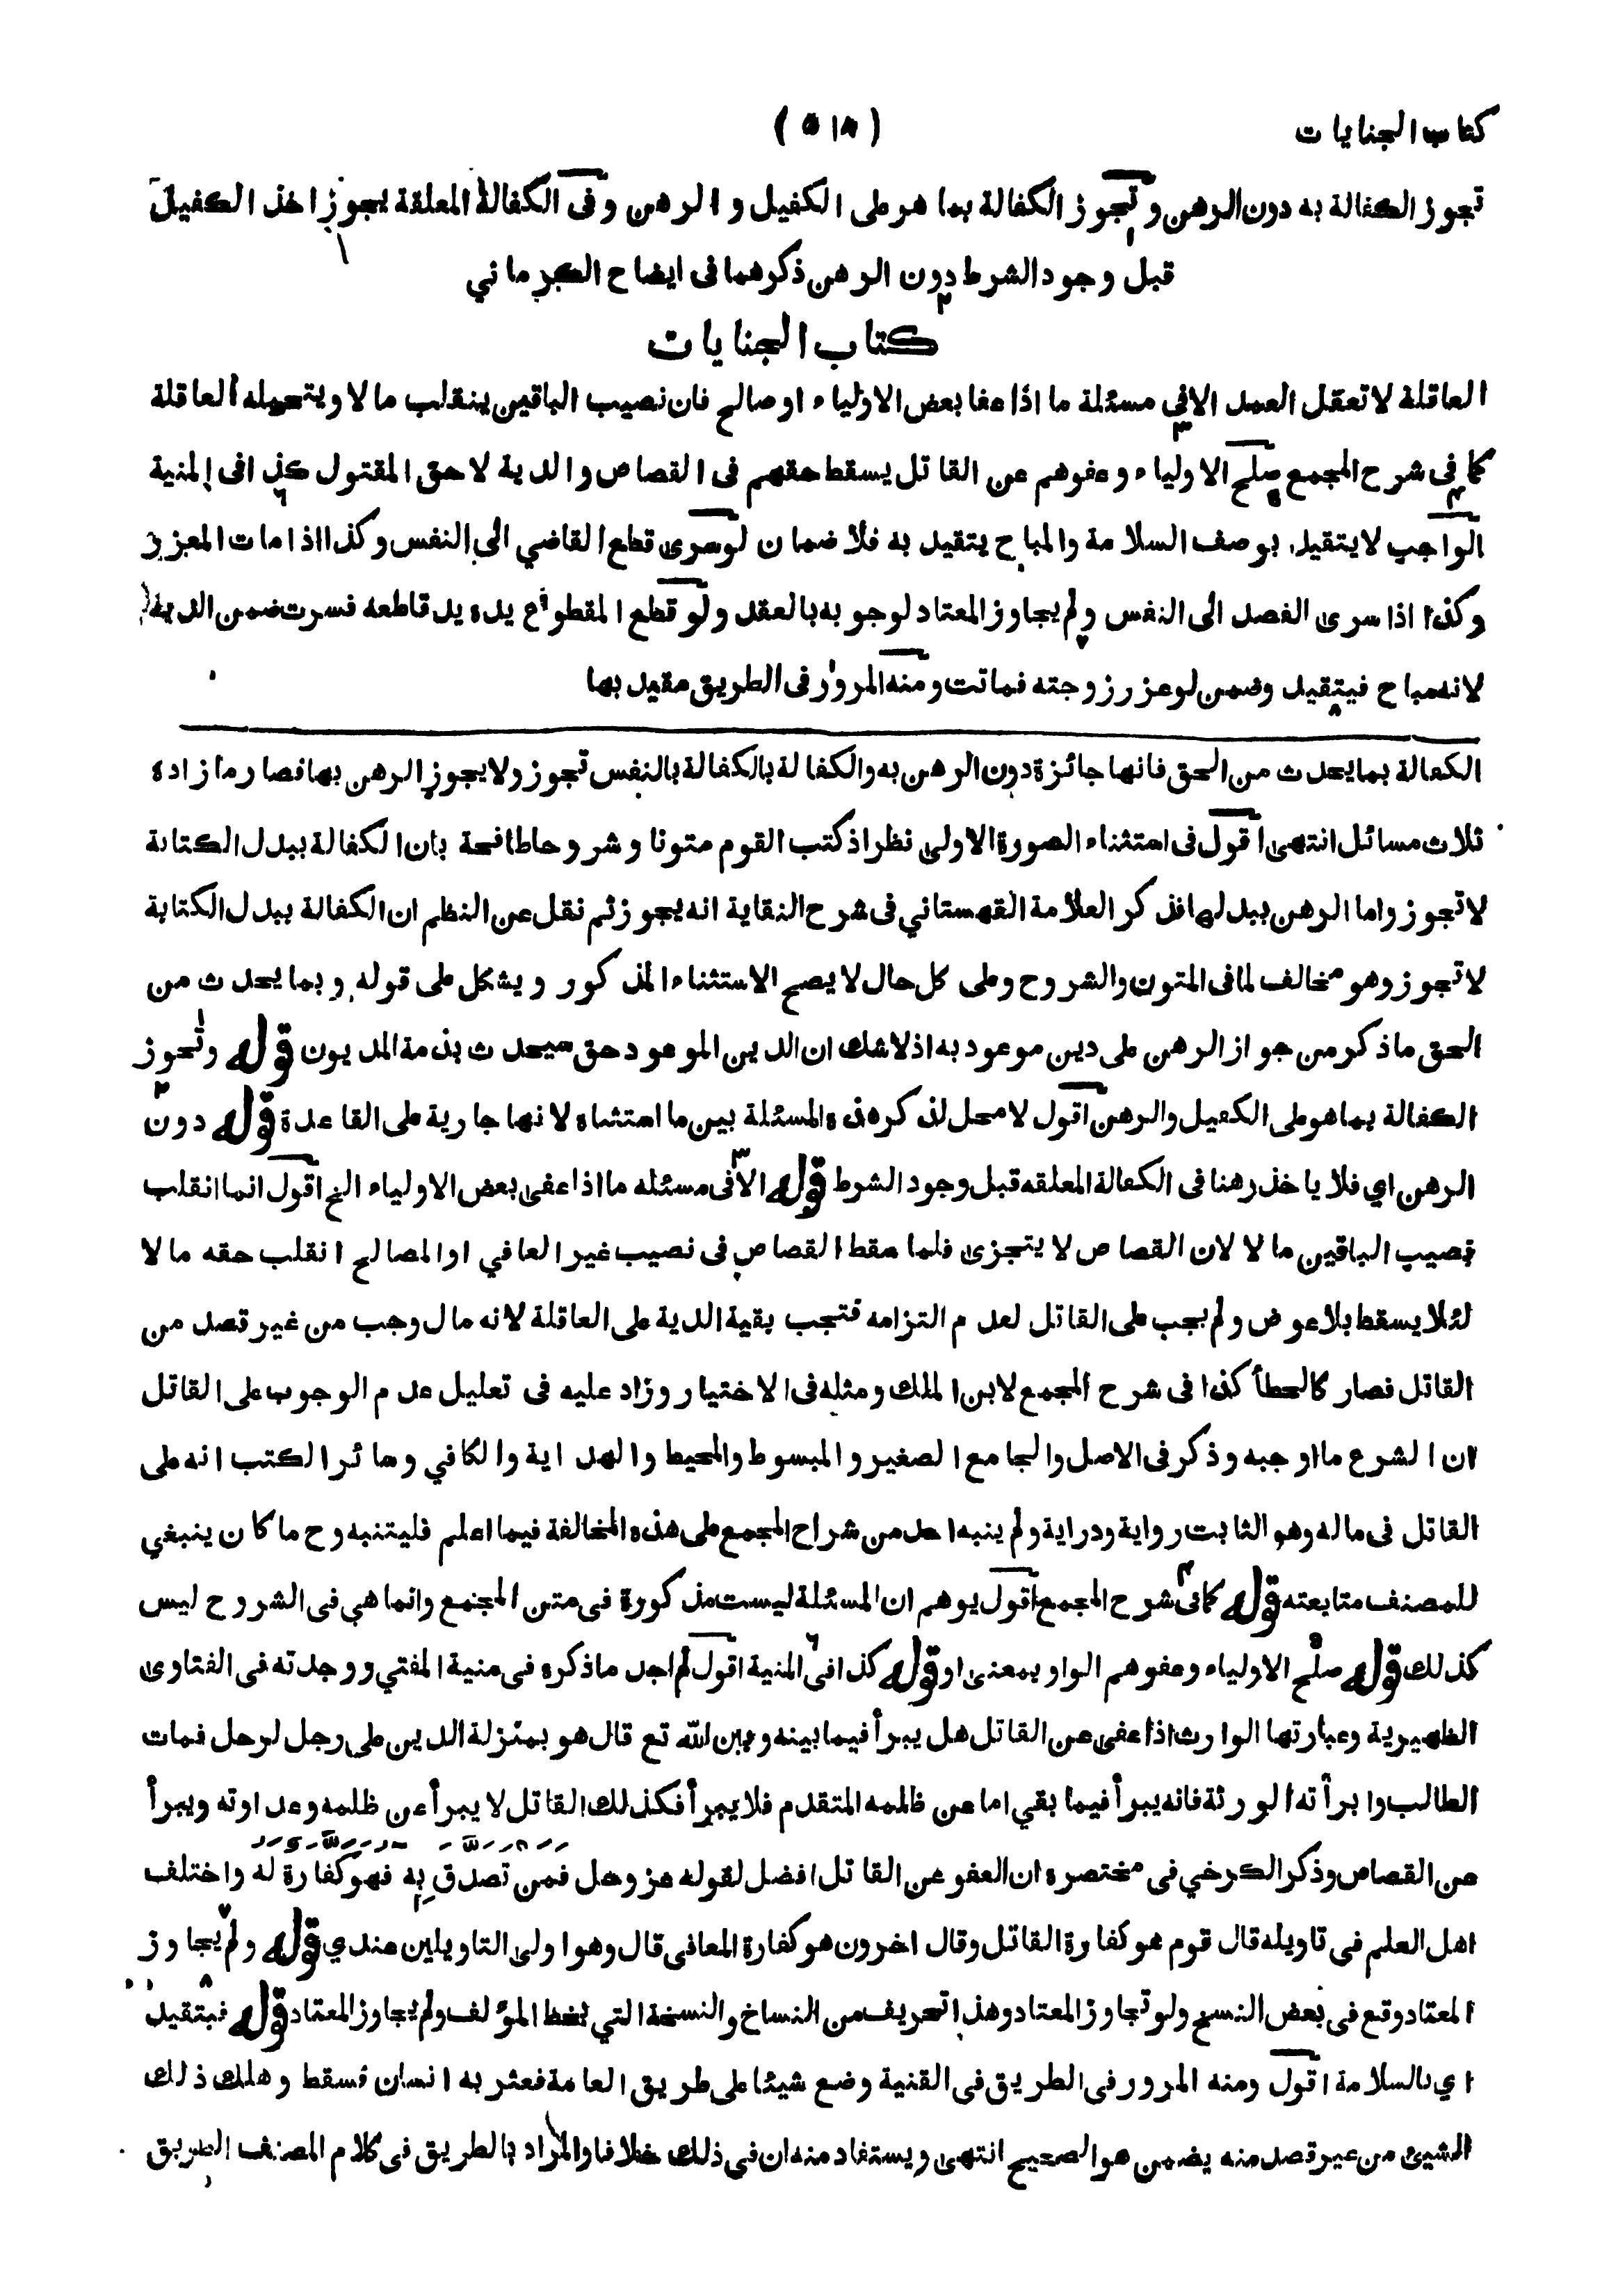 كتاب الجنايات (٥١٨)
تجوز الكفالة به دون الرهن وتجوز الكفالة بما هو على الكفيل والرهن وفى الكفالة المعلقة يجوز اخذ الكفيل
قبل وجود الشرط دون الرهن ذكرهما فى ايضاح الكرماني
كتاب الجنايات
العاقلة لا تعقل العمد الا في مسئلة ما اذا عفا بعض الاولياء او صالح فان نصيب الباقين ينقلب مالا ويتحمله العاقلة
كما فى شرح المجمع صلح الاولياء وعفوهم عن القاتل يسقط حقهم فى القصاص والدية لا حق المقتول كذا فى المنية
الواجب لا يتقيد بوصف السلامة والمباح يتقيد به فلا ضمان لو سرى قطع القاضي الى النفس وكذا اذا مات المعزر
وكذا اذا سرى الفصد الى النفس ولم يجاوز المعتاد لوجوبه بالعقد ولو قطع المقطوع يده يد قاطعه فسرت ضمن الدية
لانه مباح فيتقيد وضمن لو عزر زوجته فماتت ومنه المرور فى الطريق مقيد بها
الكفالة بما يحدث من الحق فانها جائزة دون الرهن به والكفالة بالكفالة بالنفس تجوز ولا يجوز الرهن بها فصار ما زاده
ثلاث مسائل انتهى اقول فى استثناء الصورة الاولى نظر اذ كتب القوم متونا وشروحا طافحة بان الكفالة ببدل الكتابة
لا تجوز واما الرهن ببدلها فذكر العلامة القهستاني فى شرح النقاية انه يجوز ثم نقل عن النظم ان الكفالة ببدل الكتابة
لا تجوز وهو مخالف لما فى المتون والشروح وعلى كل حال لا يصح الاستثناء المذكور ويشكل على قوله وبما يحدث من
الحق ما ذكر من جواز الرهن على دين موعود به اذ لا شك ان الدين الموعود حق سيحدث بذمة المديون قوله وتجوز
الكفالة بما هو على الكفيل والرهن اقول لا محل لذكر هذه المسئلة بين ما استثناه لانها جارية على القاعدة قوله دون
الرهن اي فلا ياخذ رهنا فى الكفالة المعلقه قبل وجود الشرط قوله الا فى مسئله ما اذا عفى بعض الاولياء الخ اقول انما انقلب
نصيب الباقين مالا لان القصاص لا يتجزى فلما سقط القصاص فى نصيب غير العافي او المصالح انقلب حقه مالا
لئلا يسقط بلا عوض ولم يجب على القاتل لعدم التزامه فتجب بقية الدية على العاقلة لانه مال وجب من غير قصد من
القاتل فصار كالخطأ كذا فى شرح المجمع لابن الملك ومثله فى الاختيار وزاد عليه فى تعليل عدم الوجوب على القاتل
ان الشرع ما اوجبه وذكر فى الاصل والجامع الصغير والمبسوط والمحيط والهداية والكافي وسائر الكتب انه على
القاتل فى ماله وهو الثابت رواية ودراية ولم ينبه احد من شراح المجمع على هذه المخالفة فيما اعلم فليتنبه وح ما كان ينبغي
للمصنف متابعته قوله كما فى شرح المجمع اقول يوهم ان المسئلة ليست مذكورة فى متن المجمع وانما هي فى الشروح ليس
كذلك قوله صلح الاولياء وعفوهم الواو بمعنى او قوله كذا فى المنية اقول لم اجد ما ذكره فى منية المفتي ووجدته فى الفتاوى
الظهيرية وعبارتها الوارث اذا عفى عن القاتل هل يبرأ فيما بينه وبين الله تع قال هو بمنزلة الدين على رجل لرجل فمات
الطالب وابرأته الورثة فانه يبرأ فيما بقي اما عن ظلمه المتقدم فلا يبرأ فكذلك القاتل لا يبرأ عن ظلمه وعداوته ويبرأ
عن القصاص وذكر الكرخي فى مختصره ان العفو عن القاتل افضل لقوله عز وجل فمن تصدق به فهو كفارة له واختلف
اهل العلم فى تاويله قال قوم هو كفارة القاتل وقال اخرون هو كفارة المعافى قال وهو اولى التاويلين عندي قوله ولم يجاوز
المعتاد وقع فى بعض النسخ ولو تجاوز المعتاد وهذا تحريف من النساخ والنسخة التي بخط المؤلف ولم يجاوز المعتاد قوله فيتقيد
اي بالسلامة اقول ومنه المرور فى الطريق فى القنية وضع شيئا على طريق العامة فعثر به انسان فسقط وهلك ذلك
الشيئ من غير قصد منه يضمن هو الصحيح انتهى ويستفاد منه ان فى ذلك خلافا والمراد بالطريق فى كلام المصنف الطريق